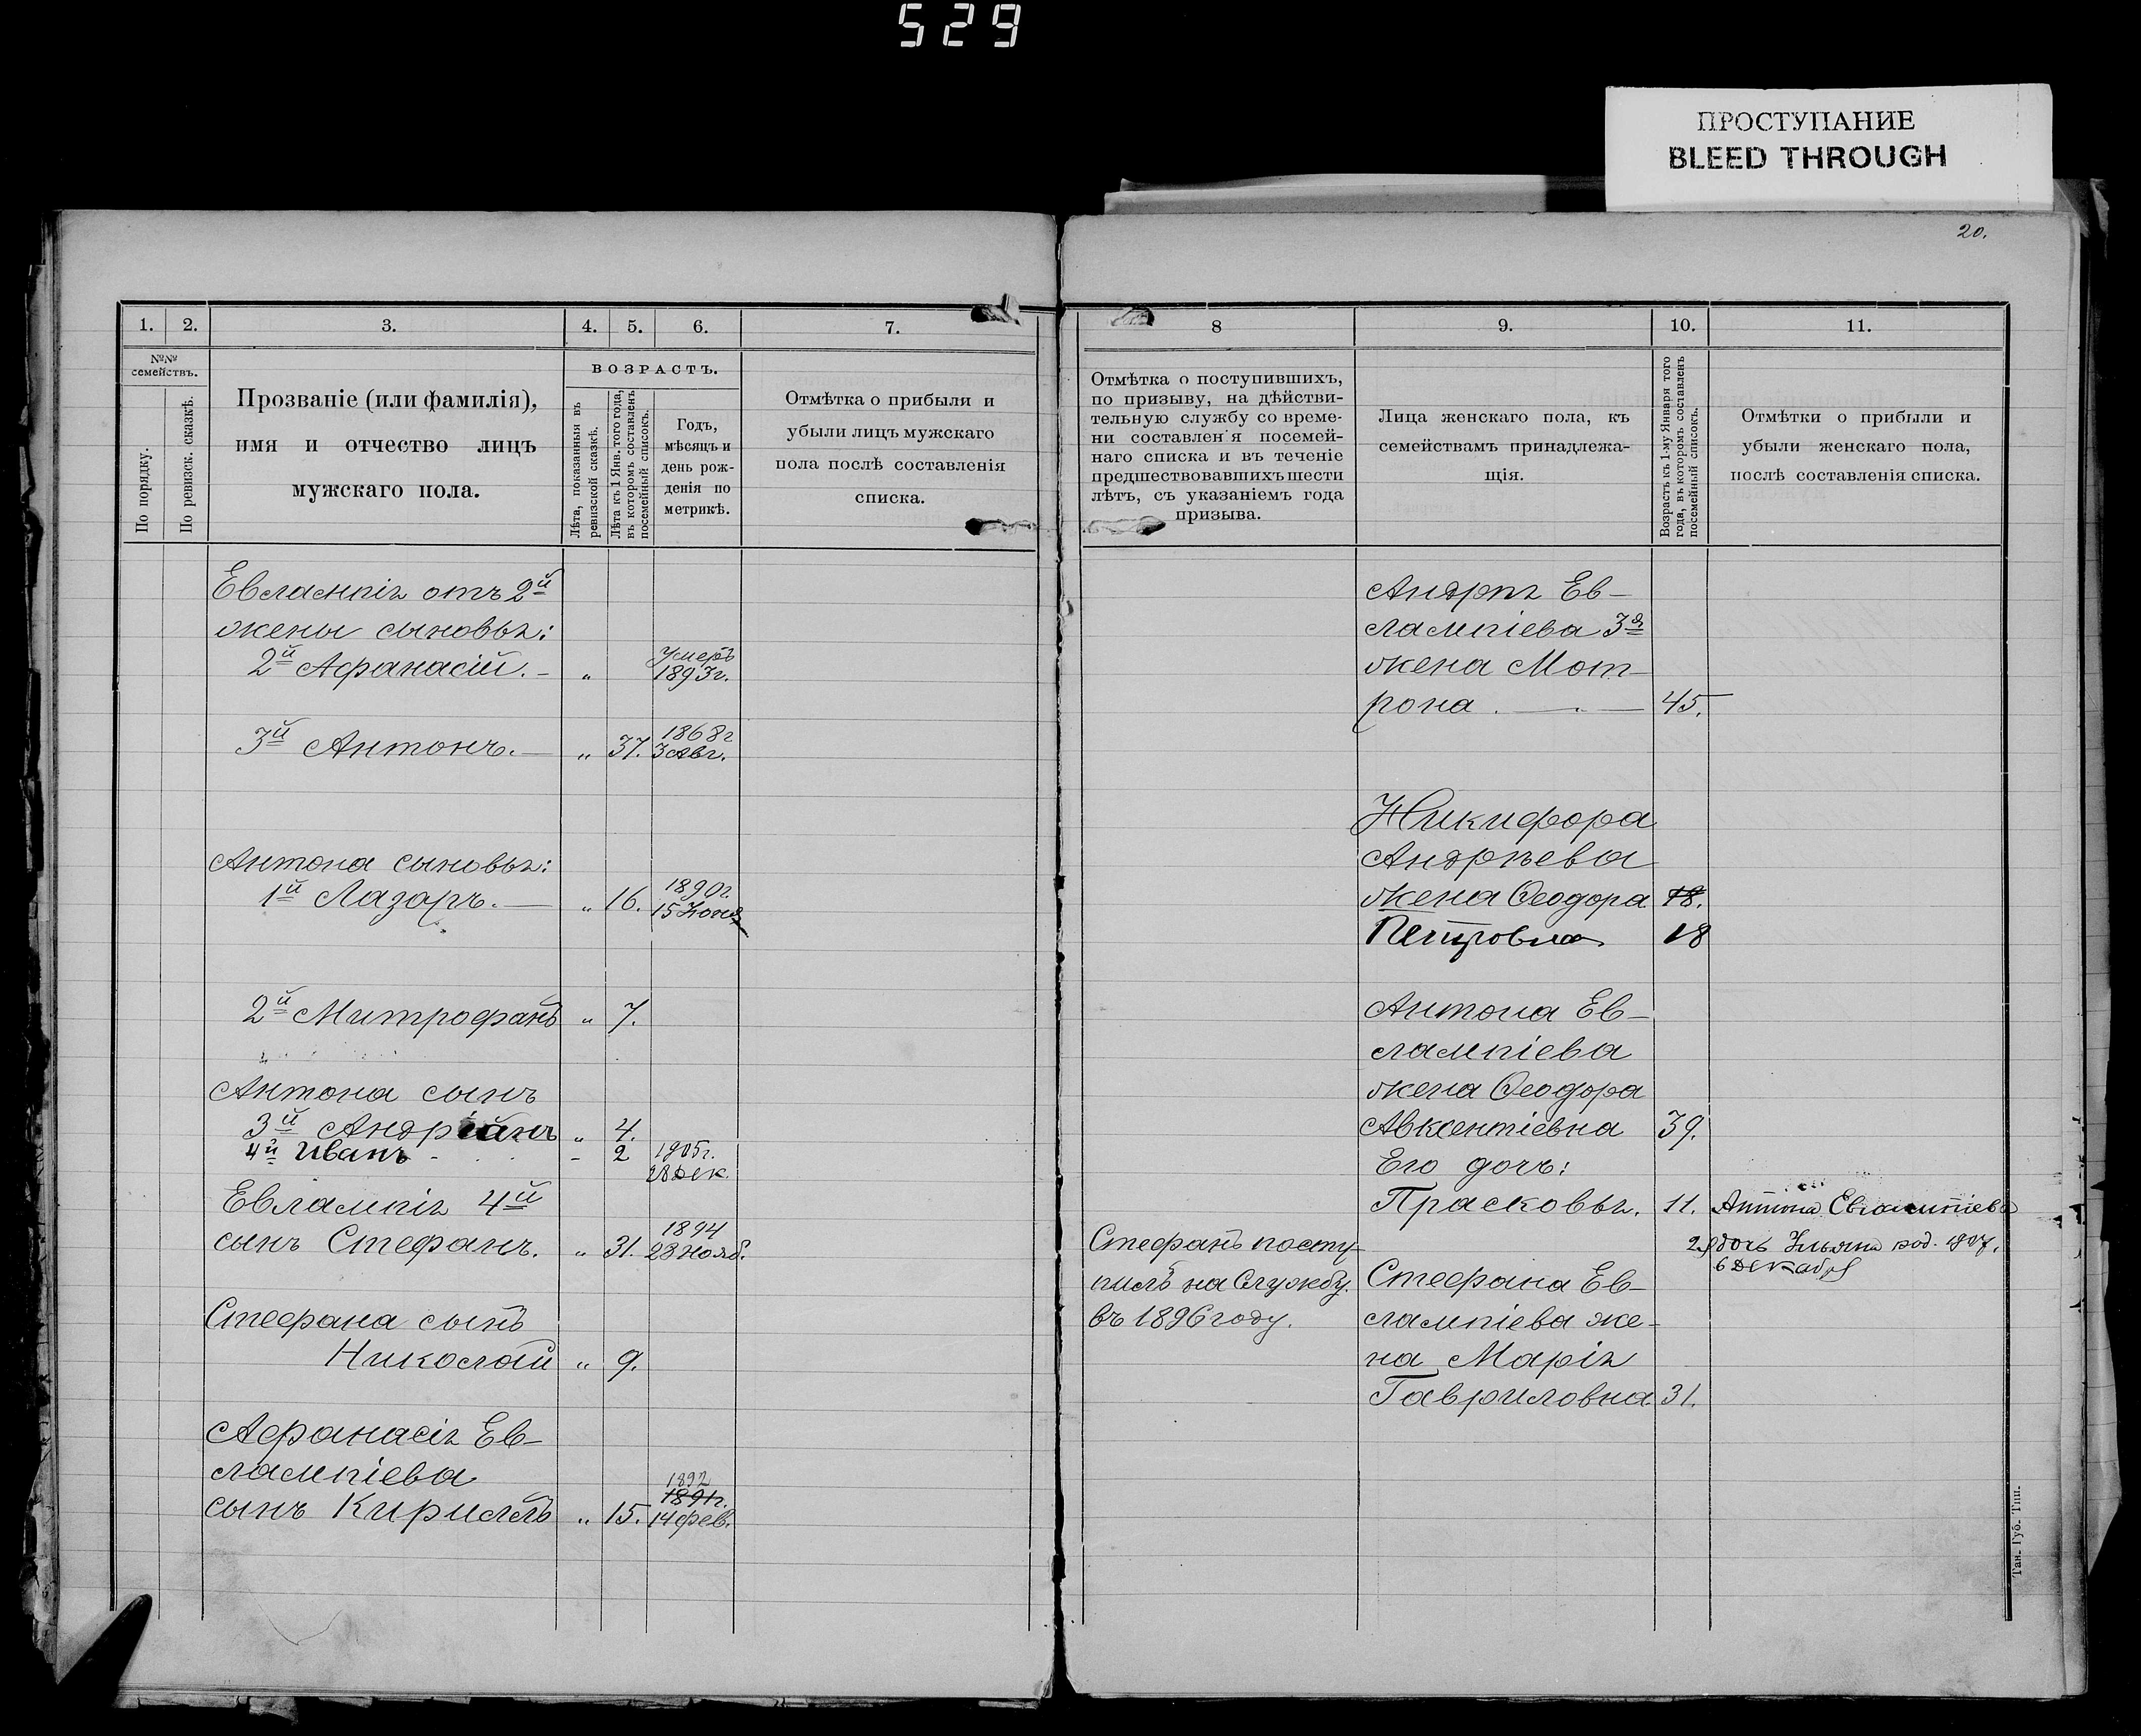 529
ПРОСТУПАНИЕ
BLEED THROUGH
20.
1. 2. 3. 4. 5. 6. 7.
№№ семействъ.
По порядку.
По ревизск. сказкѣ.
Прозваніе (или фамилія),
имя и отчество лицъ
мужскаго пола.
ВОЗРАСТЪ.
Лѣта, показанныя въ
ревизской сказкѣ.
Лѣта къ 1 Янв. того года,
въ которомъ составленъ
посемейный списокъ.
Годъ,
мѣсяцъ и
день рож-
денія по
метрикѣ.
Отмѣтка о прибыли и
убыли лицъ мужскаго
пола послѣ составленія
списка.
Евлампія отъ 2й
жены сыновья:
2й Афанасій. - „ Умеръ 1893г.
3й Антонъ. — „ 37. 1868г 3 Авг.
Антона сыновья:
1й Лазарь. — „ 16. 1890г. 15 Іюня
2й Митрофанъ „ 7.
Антона сынъ
3й Андріанъ „ 4.
4й Иванъ - - 2 1905г. 28 Дек.
Евлампія 4й
сынъ Стефанъ. „ 31. 1894 23 Нояб.
Стефана сынъ
Николай „ 9.
Афанасія Ев-
лампіева
сынъ Кириллъ „ 15. 1892 1891г. 14 фев.
8 9. 10. 11.
Отмѣтка о поступившихъ,
по призыву, на дѣйстви-
тельную службу со време-
ни составленія посемей-
наго списка и въ теченіе
предшествовавшихъ шести
лѣтъ, съ указаніемъ года
призыва.
Лица женскаго пола, къ
семействамъ принадлежа-
щія.
Возрастъ къ 1-му Января того
года, въ которомъ составленъ
посемейный списокъ.
Отмѣтки о прибыли и
убыли женскаго пола,
послѣ составленія списка.
Андрея Ев-
лампіева 3я
жена Мот-
рона. — 45.
Никифора
Андреева
жена Ѳеодора 18.
Петровна 18
Антона Ев-
лампіева
жена Ѳеодора
Авксентіевна 39.
Его дочь:
Прасковья. 11. Антона Евлампіева
2я дочь Ульяна род. 1907.
6 Декабря
Стефанъ посту-
пилъ на Службу
въ 1896 году.
Стефана Ев-
лампіева же-
на Марія
Гавриловна 31.
Тан. Губ. Тип.